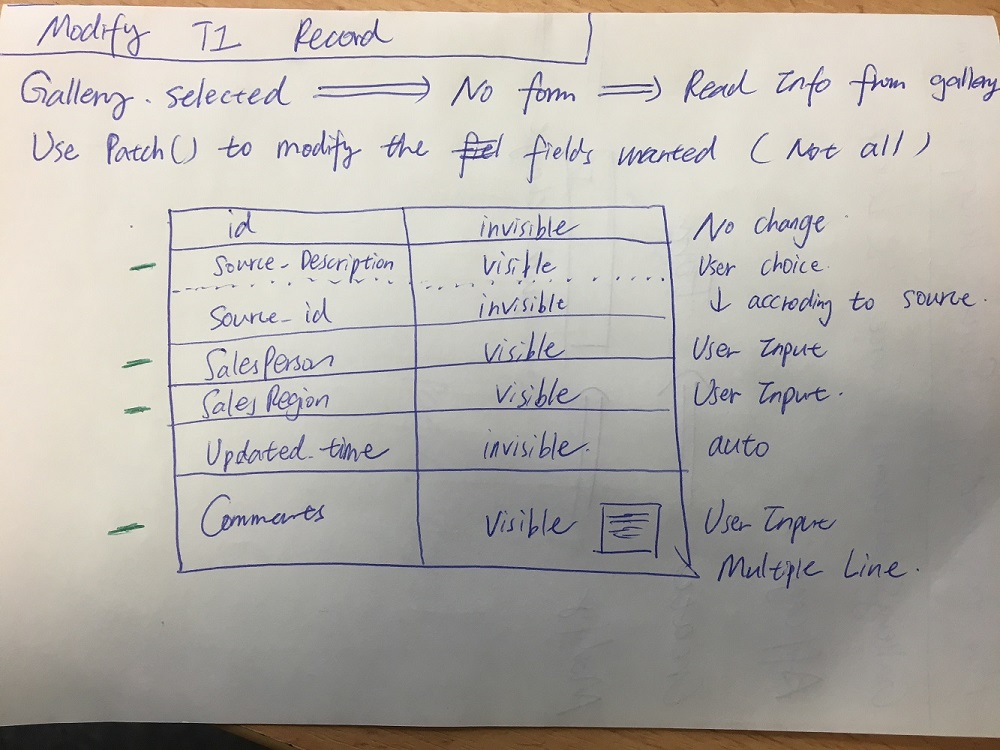 Modify T1 Record
Gallery.selected ⟹ No form ⟹ Read Info from gallery
Use Patch() to modify the fields wanted (Not all)
id invisible No change.
Source_Description visible User choice.
Source_id invisible ↓ accroding to source.
SalesPerson visible User Input
SalesRegion visible User Input.
Updated_time invisible. auto
Comments visible User Input
Multiple Line.